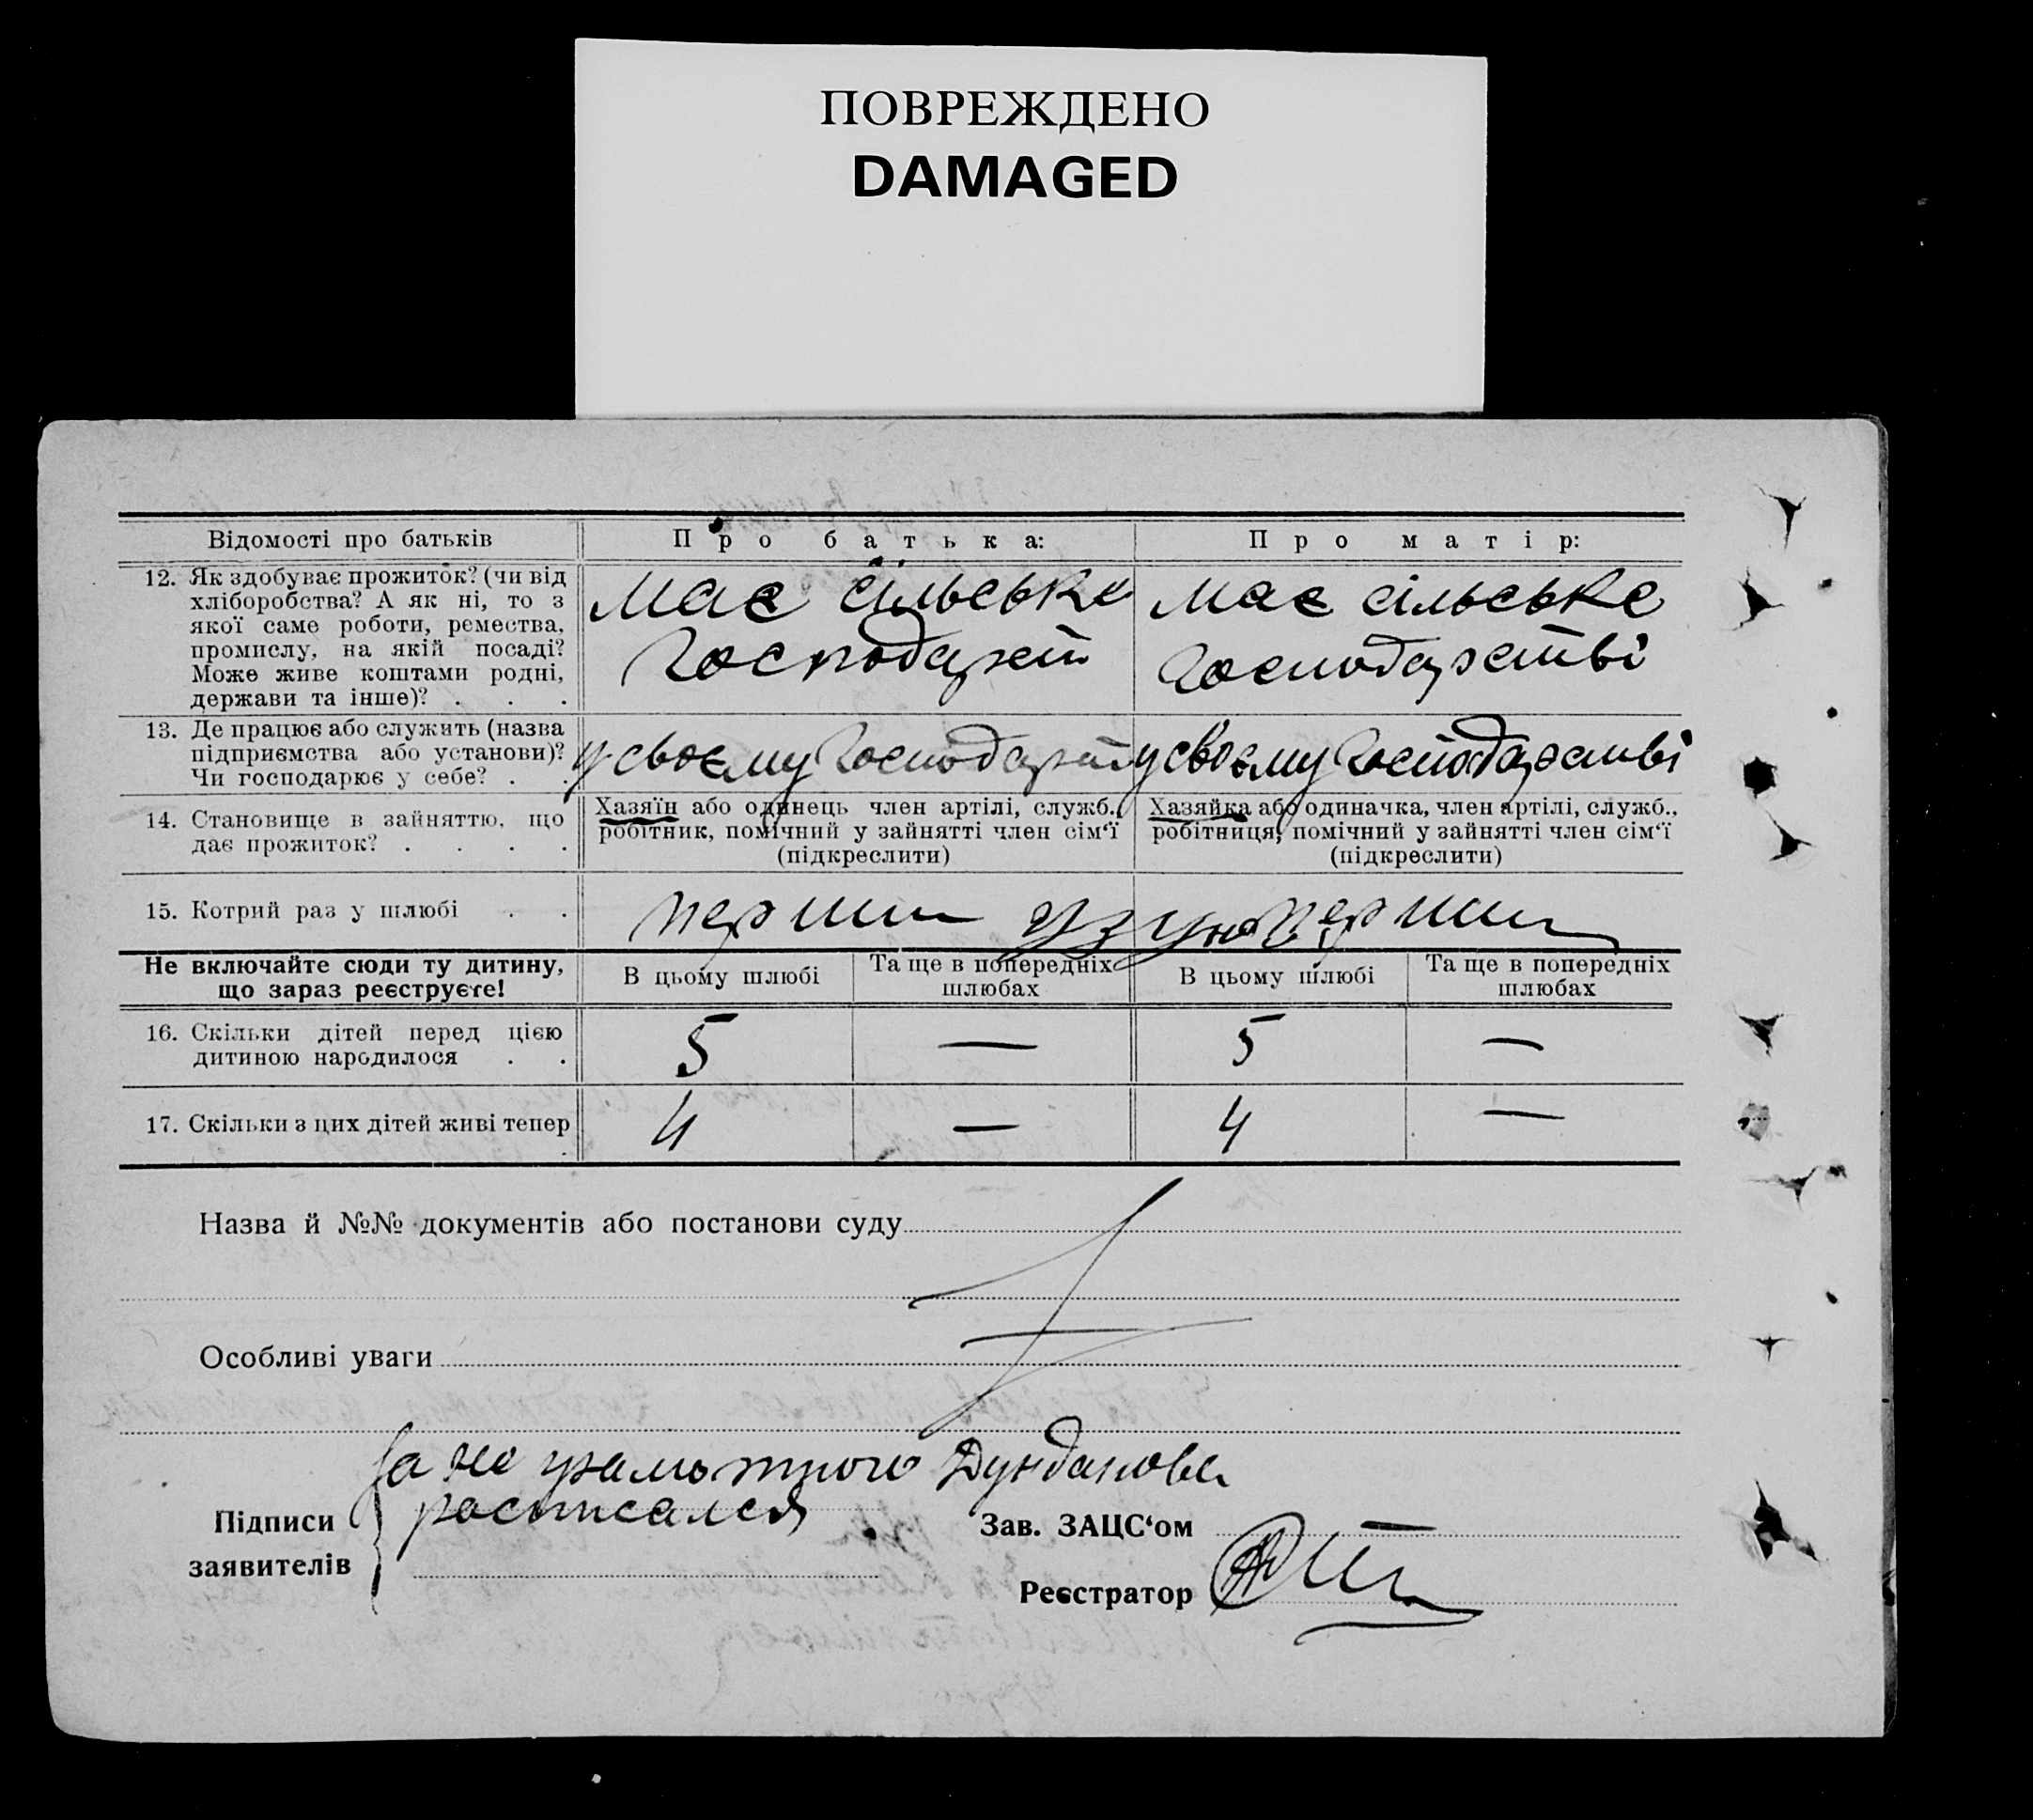 ПОВРЕЖДЕНО
DAMAGED
Відомості про батьків
Про батька:
Про матір:
12. Як здобуває прожиток? (чи від
хліборобства? А як ні, то з
якої саме роботи, ремества,
промислу, на якій посаді?
Може живе коштами родні,
держави та інше)? . . .
має сільське
господарст
має сільське
господарстві
13. Де працює або служить (назва
підприємства або установи)?
Чи господарює у себе? . .
у своєму господарст
у своєму господарстві
14. Становище в зайняттю, що
дає прожиток? . . . .
Хазяїн або одинець член артілі, служб.,
робітник, помічний у зайнятті член сім‘ї
(підкреслити)
Хазяйка або одиначка, член артілі, служб.,
робітниця, помічний у зайнятті член сім‘ї
(підкреслити)
15. Котрий раз у шлюбі . .
перши
перши
Не включайте сюди ту дитину,
що зараз реєструєте!
В цьому шлюбі
Та ще в попередніх
шлюбах
В цьому шлюбі
Та ще в попередніх
шлюбах
16. Скільки дітей перед цією
дитиною народилося . .
5 — 5 —
17. Скільки з цих дітей живі тепер .
4 — 4 —
Назва й №№ документів або постанови суду
Особливі уваги
За не грамотного Дундакова
росписался
Підписи
заявителів
Зав. ЗАЦС‘ом
Реєстратор